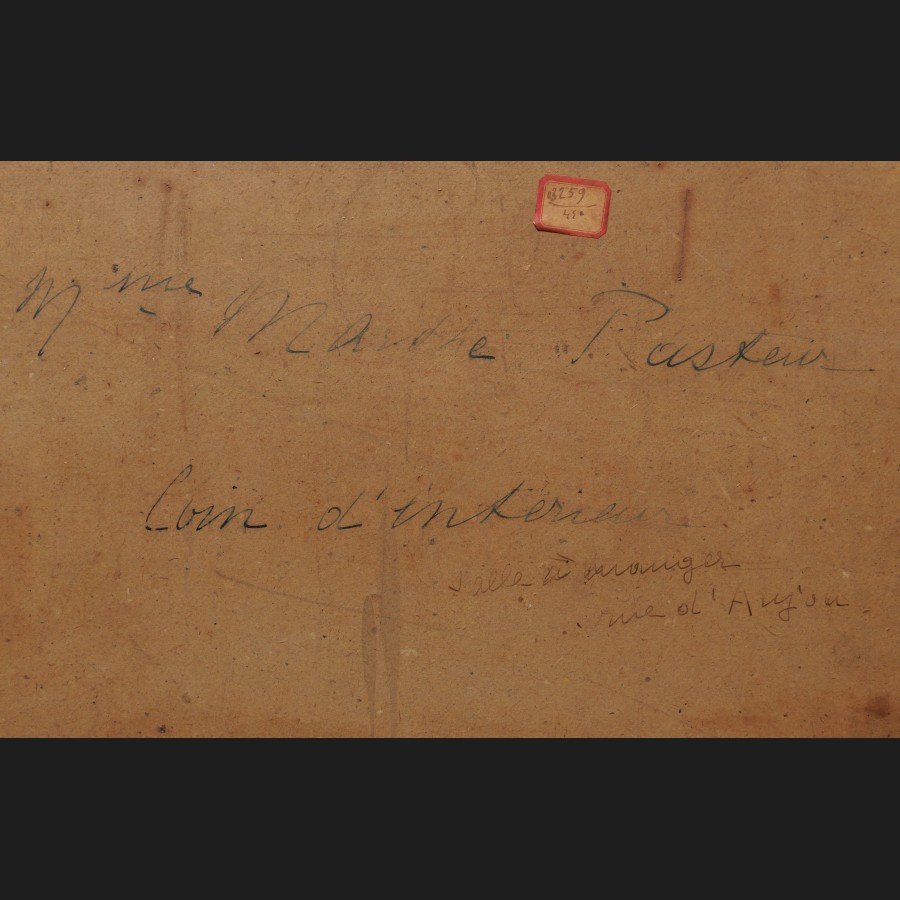 3259
45°
Mme Marthe Pasteur
Coin d'intérieur
Salle à manger
rue d'Anjou.